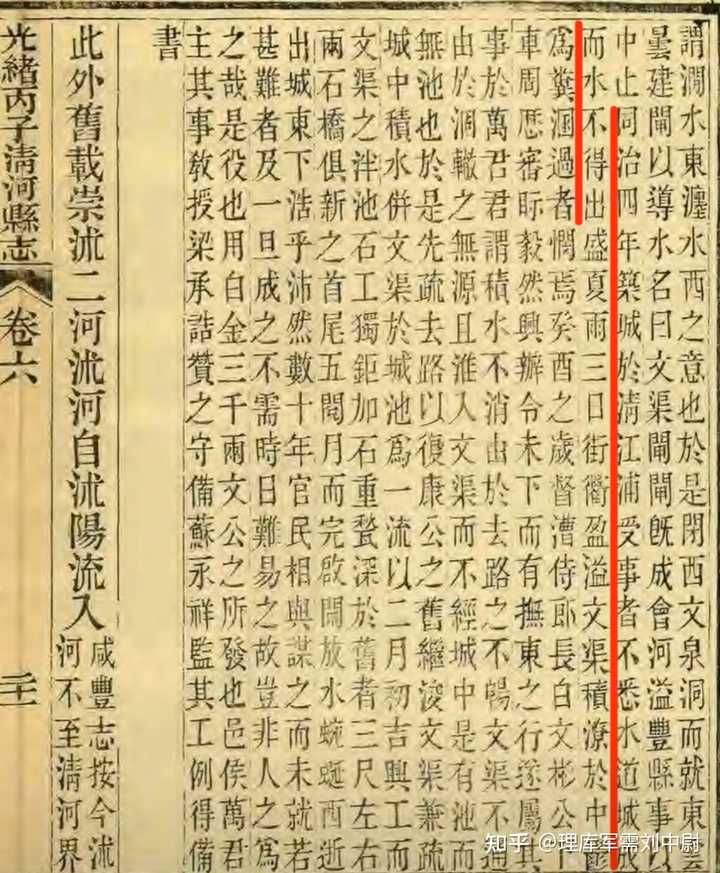 謂澗水東瀍水西之意也於是閉西文泉洞而就東雲
曇建閘以導水名曰文渠閘閘旣成會河溢豐縣事以
中止同治四年築城於清江浦受事者不悉水道城成
而水不得出盛夏雨三日街衢盈溢文渠積潦於中
爲糞溷過者憫焉癸酉之歲督漕侍郎長白文彬公下
車周歷審眎毅然興辦令未下而有撫東之行遂屬其
事於萬君君謂積水不消由於去路之不暢文渠不通
由於涸轍之無源且淮入文渠而不經城中是有池而
無池也於是先疏去路以復康公之舊繼浚文渠兼疏
城中積水併文渠於城池爲一流以二月初吉興工而
文渠之泮池石工獨鉅加石重甃深於舊者三尺左右
兩石橋俱新之首尾五閱月而完啟閘放水蜿蜒西逝
出城東下浩乎沛然數十年官民相與謀之而未就若
甚難者及一旦成之不需時日難易之故豈非人之爲
之哉是役也用白金三千兩文公之所發也邑侯萬君
主其事敎授梁承誥贊之守備蘇永祥監其工例得備
書
此外舊載崇沭二河沭河自沭陽流入
咸豐志按今沭
河不至清河界
光緒丙子清河縣志
卷六
二十一
知乎 @理库军需刘中尉